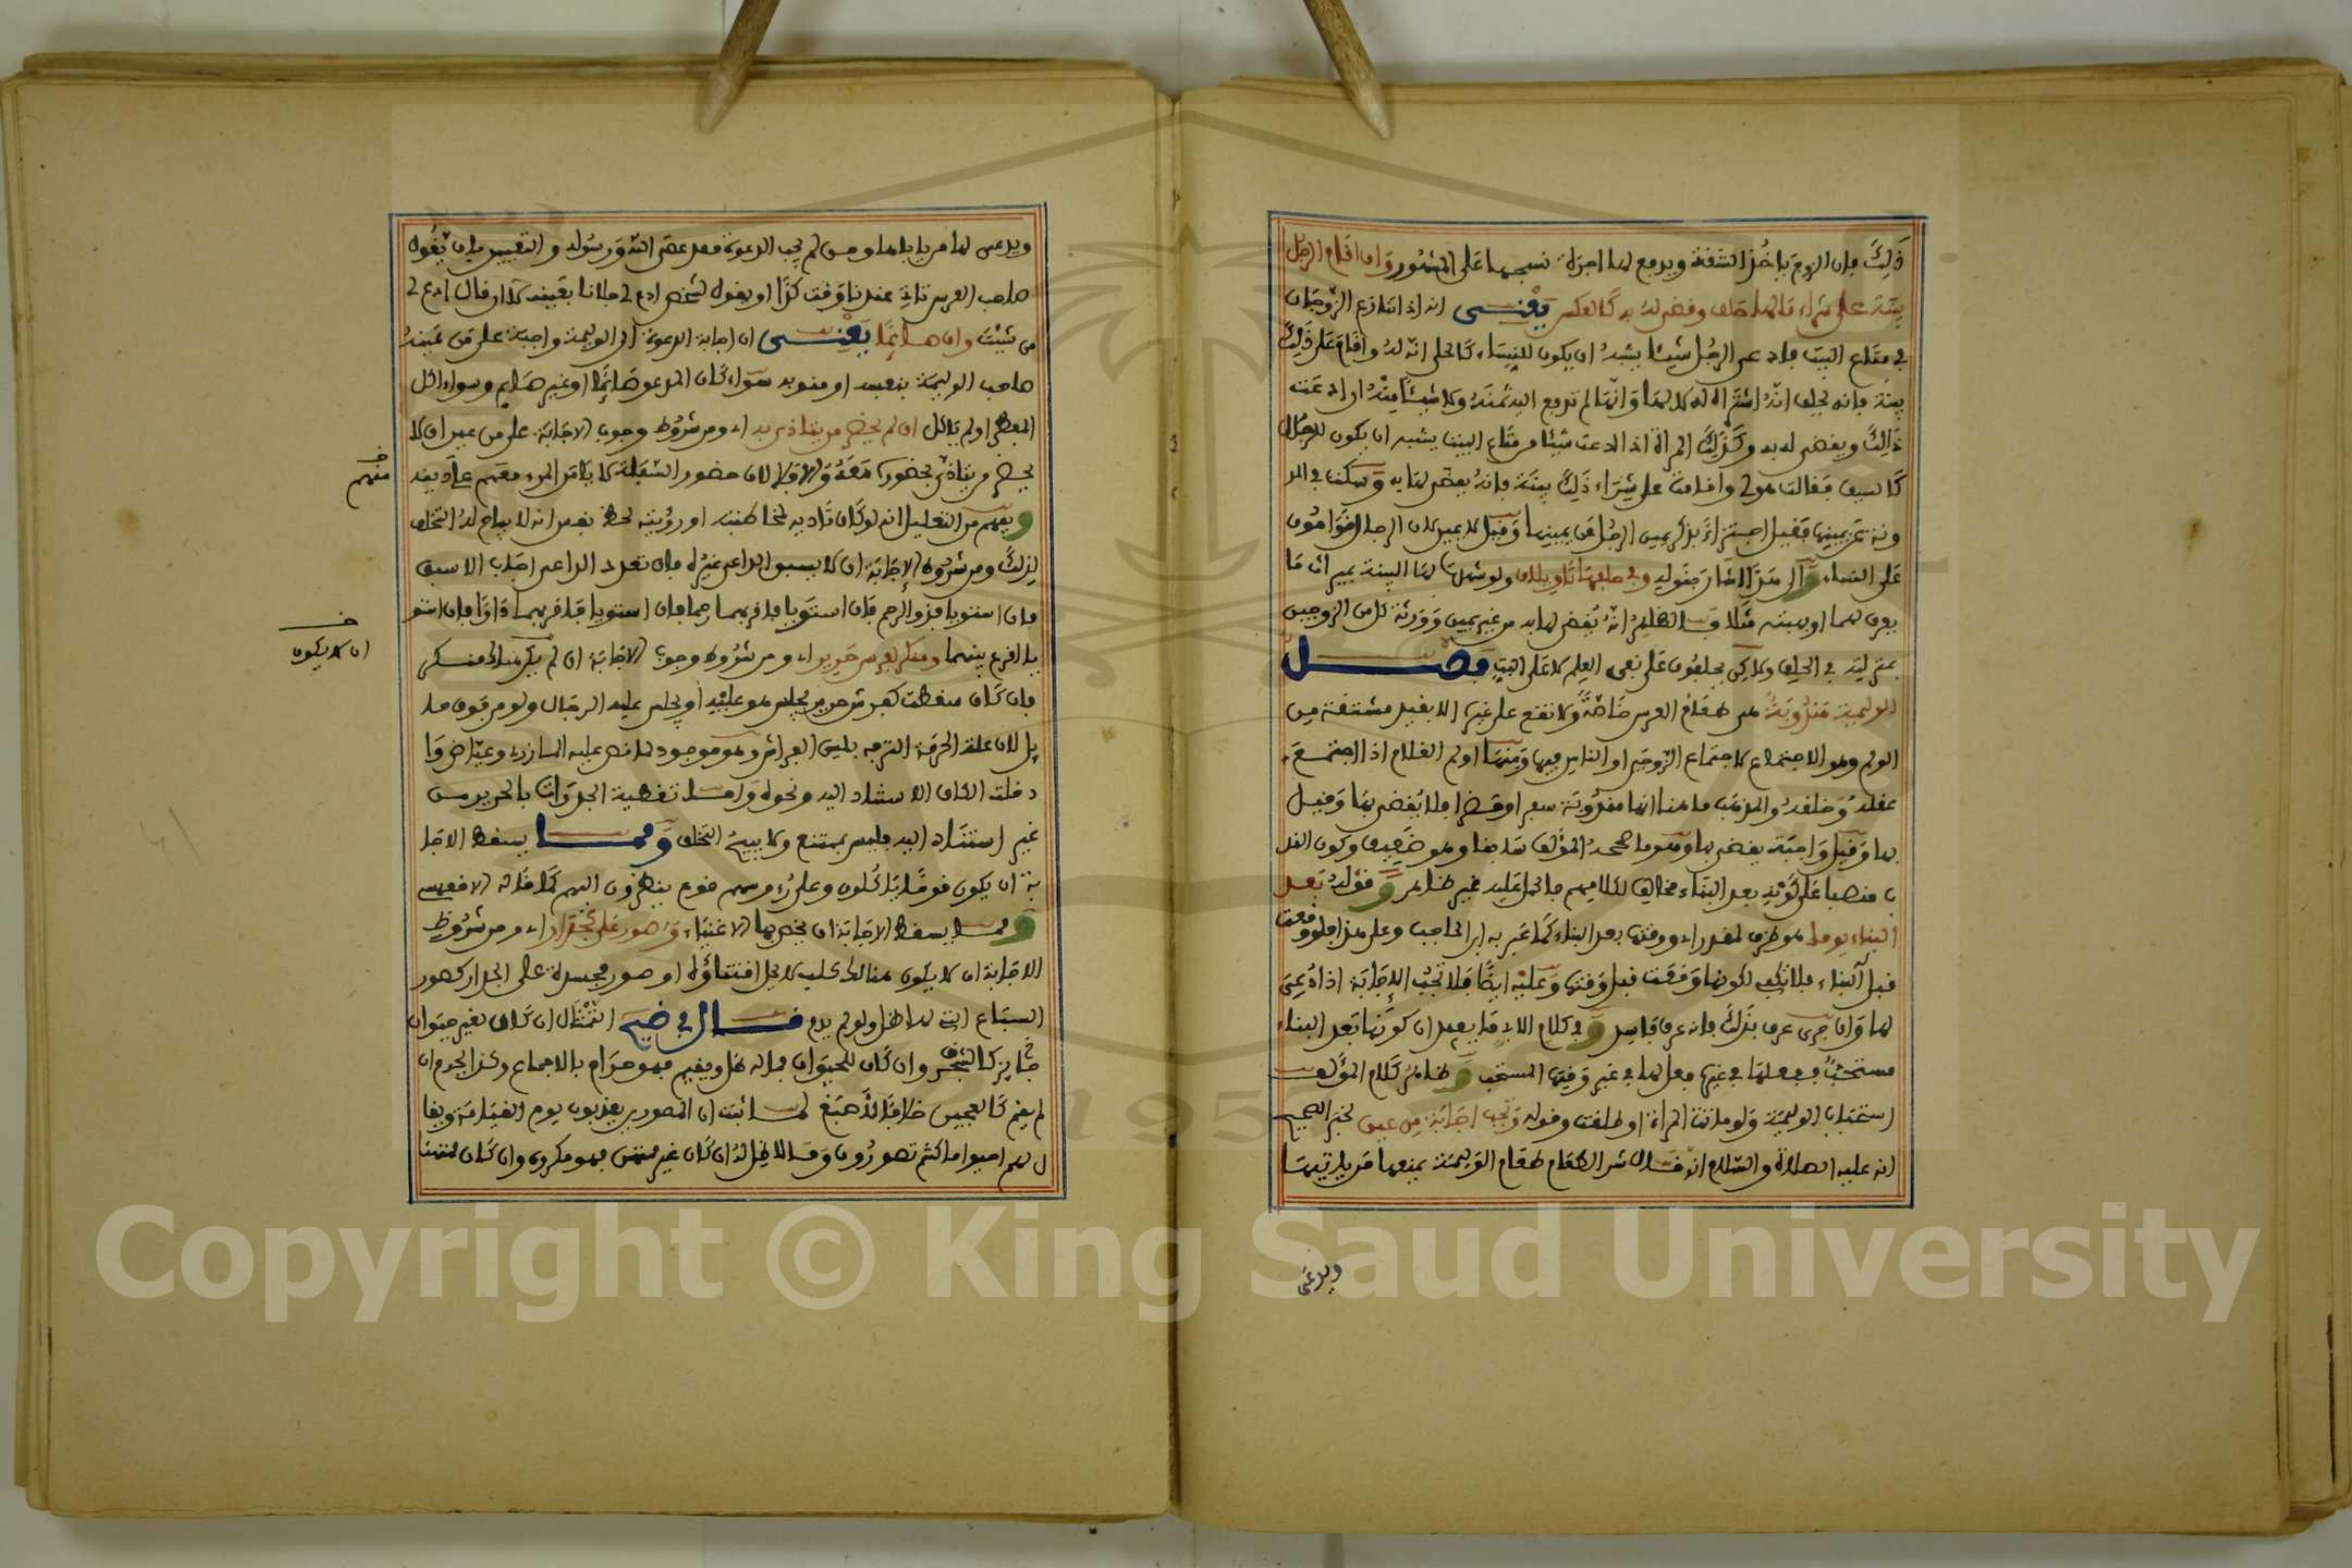 ذلك فإن الزوج يأخذ الشقة ويدفع لها أجرة نسجها على المشهور وإن أقام الرجل
بينة على شراء ما لها حلف وقضي له به كالعكس يعني أنه إذا تنازع الزوجان
في متاع البيت فادعى الرجل شيئا يشبه أن يكون للنساء كالحلي أنه له وأقام على ذلك
بينة فإنه يحلف أنه اشتراه له لا لها وأنها لم تدفع إليه ثمنه ولا شيئا منه إن ادعت
ذلك ويقضى له به وكذلك المرأة إذا ادعت شيئا من متاع البيت يشبه أن يكون للرجال
كالسيف فقالت هو لي وأقامت على شراء ذلك بينة فإنه يقضى لها به وسكت في المد
ونة عن يمينها فقيل اجتزاء بذكر يمين الرجل عن يمينها وقيل لا يمين لأن الرجال قوامون
على النساء وإلى هذا أشار بقوله وفي حلفها تأويلان ولو شهدت لها البينة بميراث ما
يعرف لهما أو بهبته مثلا فالظاهر أنه يقضى لها به من غير يمين وورثة كل من الزوجين
بمنزلته في الحلف ولكن يحلفون على نفي العلم لا على البت فصل
الوليمة مندوبة هي طعام العرس خاصة ولا تقع على غيره إلا بقيد مشتقة من
الولم وهو الاجتماع لاجتماع الزوجين أو الناس فيها ومنها أولم الغلام إذا اجتمع
عقله وخلقه والمذهب ما هنا أنها مندوبة سفرا وحضرا فلا يقضى بها وقيل
بها وقيل واجبة يقضى بها وهو ما صححه المؤلف سابقا وهو ضعيف وكون الند
ب منصبا على كونه بعد البناء مخالف لكلامهم فالحمل عليه غير ظاهر وقوله بعد
البناء يوما هو ظرف لمقدر أي ووقتها بعد البناء كما عبر به ابن الحاجب وعلى هذا فلو وقعت
قبل البناء فلا تكفي لكونها وقعت قبل وقتها وعليه أيضا فلا تجب الإجابة إذا دعي
لها وإن جرى عرف بذلك فإنه عرف فاسد وفي كلام الأبي ما يفيد أن كونها بعد البناء
مستحب ففعلها في غيره فعل لها في غير وقتها المستحب وظاهر كلام المؤلف
استحباب الوليمة ولو ماتت المرأة أو طلقت وقوله وتجب إجابة من عين لخبر الصحيح
أنه عليه الصلاة والسلام أنه قال شر الطعام طعام الوليمة يمنعها من يأتيها
ويدعى
ويدعى لها من يأباها ومن لم يجب الدعوة فقد عصى الله ورسوله والتعيين بأن يقول
صاحب العرس تأتي عندنا وقت كذا أو يقول لشخص ادع لي فلانا بعينه لا إن قال ادع لي
من شئت وإن صائما يعني أن إجابة الدعوة إلى الوليمة واجبة على من عينه
صاحب الوليمة بنفسه أو مندوبه سواء كان المدعو صائما أو غير صائم وسواء أكل
المفطر أو لم يأكل إن لم يحضر من يتأذى به أي ومن شروط وجوب الإجابة على من عين أن لا
يحضر من يتأذى بحضوره معه وإلا فلا لأن حضور السفلة لا يأمن المرء معهم على دينه
منهم
ويفهم من التعليل أنه لو كان تأذيه لمخاطبته أو رؤيته لحظ نفس أنه لا يباح له التخلف
لذلك ومن شروط الإجابة أن لا يسبق الداعي غيره فإن تعدد الداعي أجاب الأسبق
فإن استويا فذو الرحم فإن استويا فأقربهما رحما فإن استويا فأقربهما دارا فإن استو
يا أقرع بينهما ومنكر كفرش حرير أي ومن شروط وجوب الإجابة أن لا يكون هناك منكر
أن لا يكون
فإن كان سقطت كفرش حرير يجلس هو عليه أو يجلس عليه الرجال ولو من فوق حا
يل لأن علة الحرمة الترفه بلين الفراش وهو موجود كما نص عليه المازري وعياض وا
دخلت الكاف الاستناد إليه ونحوه وأما تغطية الجدرات بالحرير من
غير استناد إليه فليس بممتنع ولا يبيح التخلف ومما يسقط الإجا
بة أن يكون قوما يأكلون وعلى رءوسهم قوم ينظرون إليهم كما قاله الأقفهسي
ومما يسقط الإجابة أن يخص بها الأغنياء وصور على كجدار أي ومن شروط
الإجابة أن لا يكون هناك كلب لا يحل اقتناؤه أو صور مجسدة على الجدار كصور
السباع التي لها ظل ولو لم يدم قال في ضيح التمثال إن كان لغير حيوان
جايز كالشجر وإن كان للحيوان فما له ظل ويقيم فهو حرام بالإجماع وكذا إن
لم يقم كالعجين خلافا لأصبغ لما ثبت أن المصورين يعذبون يوم القيامة ويقا
ل لهم أحيوا ما كنتم تصورون وما لا ظل له إن كان غير ممتهن فهو مكروه وإن كان ممتهنا
Copyright © King Saud University